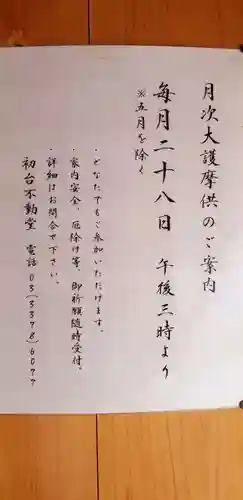 月次大護摩供のご案内
毎月二十八日　午後三時より
※五月を除く
・どなたでもご参加いただけます。
・家内安全、厄除け等、御祈願随時受付。
・詳細はお問合せ下さい。
初台不動堂　電話 03(3378)6077